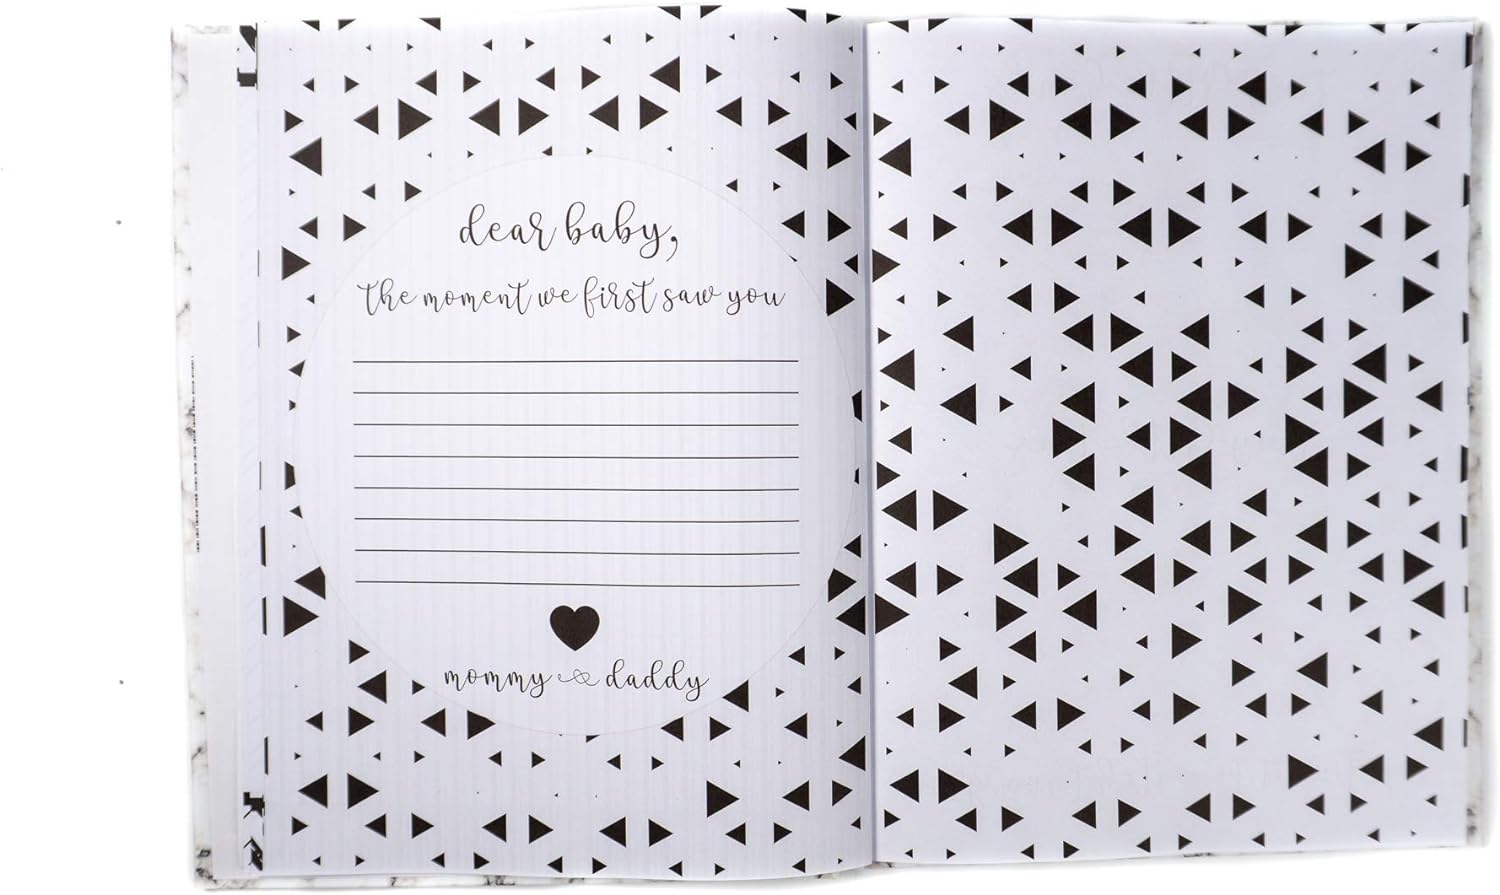 dear baby,
the moment we first saw you
mommy & daddy